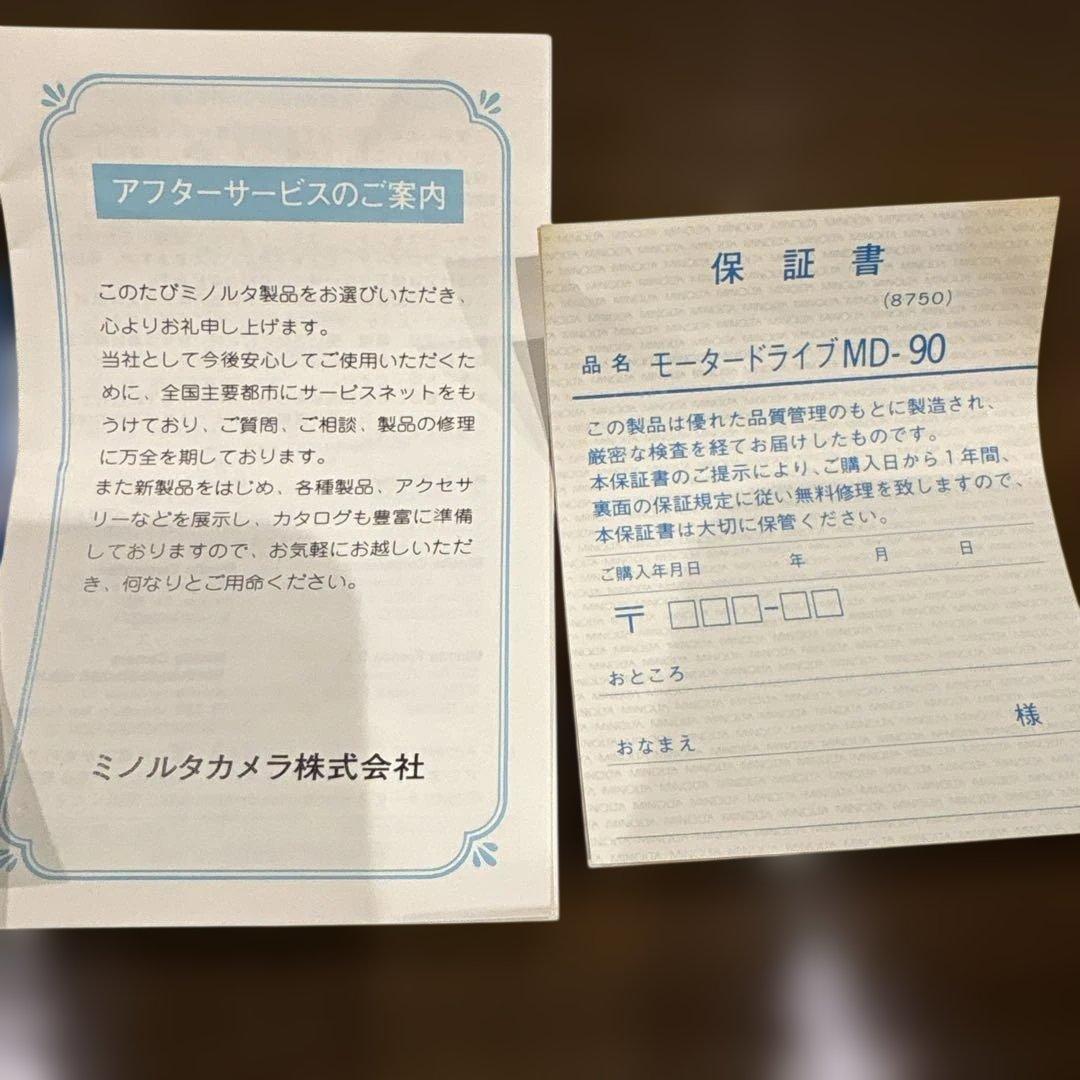 アフターサービスのご案内
このたびミノルタ製品をお選びいただき、
心よりお礼申し上げます。
当社として今後安心してご使用いただくた
めに、全国主要都市にサービスネットをも
うけており、ご質問、ご相談、製品の修理
に万全を期しております。
また新製品をはじめ、各種製品、アクセサ
リーなどを展示し、カタログも豊富に準備
しておりますので、お気軽にお越しいただ
き、何なりとご用命ください。
ミノルタカメラ株式会社
保証書
(8750)
品名 モータードライブMD-90
この製品は優れた品質管理のもとに製造され、
厳密な検査を経てお届けしたものです。
本保証書のご提示により、ご購入日から1年間、
裏面の保証規定に従い無料修理を致しますので、
本保証書は大切に保管ください。
ご購入年月日 年 月 日
〒 □□□-□□
おところ
おなまえ 様